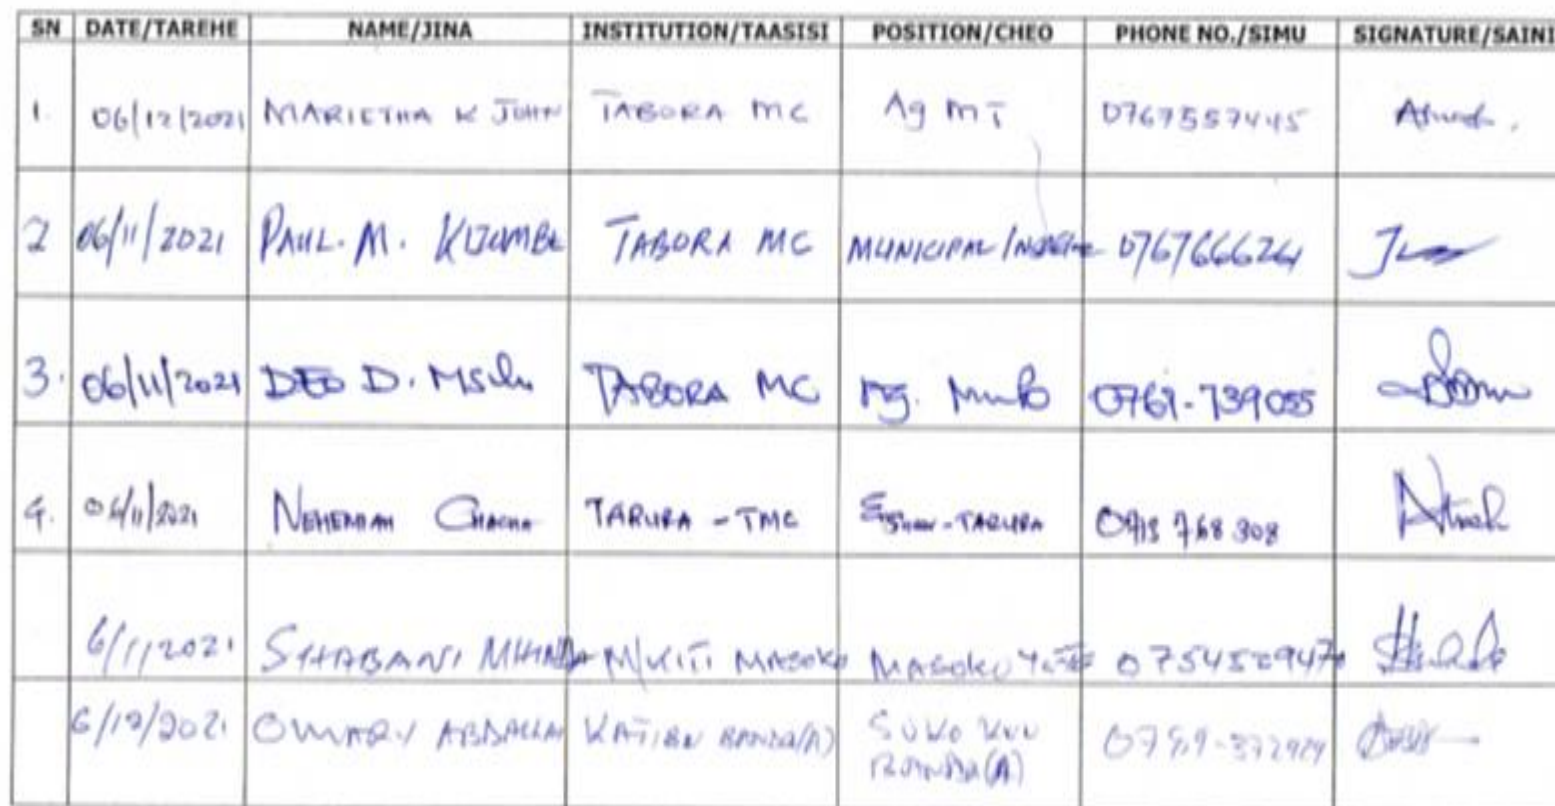 SN DATE/TAREHE NAME/JINA INSTITUTION/TAASISI POSITION/CHEO PHONE NO./SIMU SIGNATURE/SAINI
1. 06/12/2021 MARIETHA K JOHN TABORA MC Ag MT 0767557445
2 06/11/2021 PAUL. M. TABORA MC MUNICIPAL 0767666624
3. 06/11/2021 DEO D. TABORA MC Ag. 0769-739055
4. 06/11/2021 NEHEMIAH CHACHA TARURA - TMC TARURA 0713 768 308
6/11/2021 SHABANI M/KITI MASOKO MASOKO
6/12/2021 OMARY ABDALLAH KATIBU BANDA(A) SOKO KUU
BANDA(A)